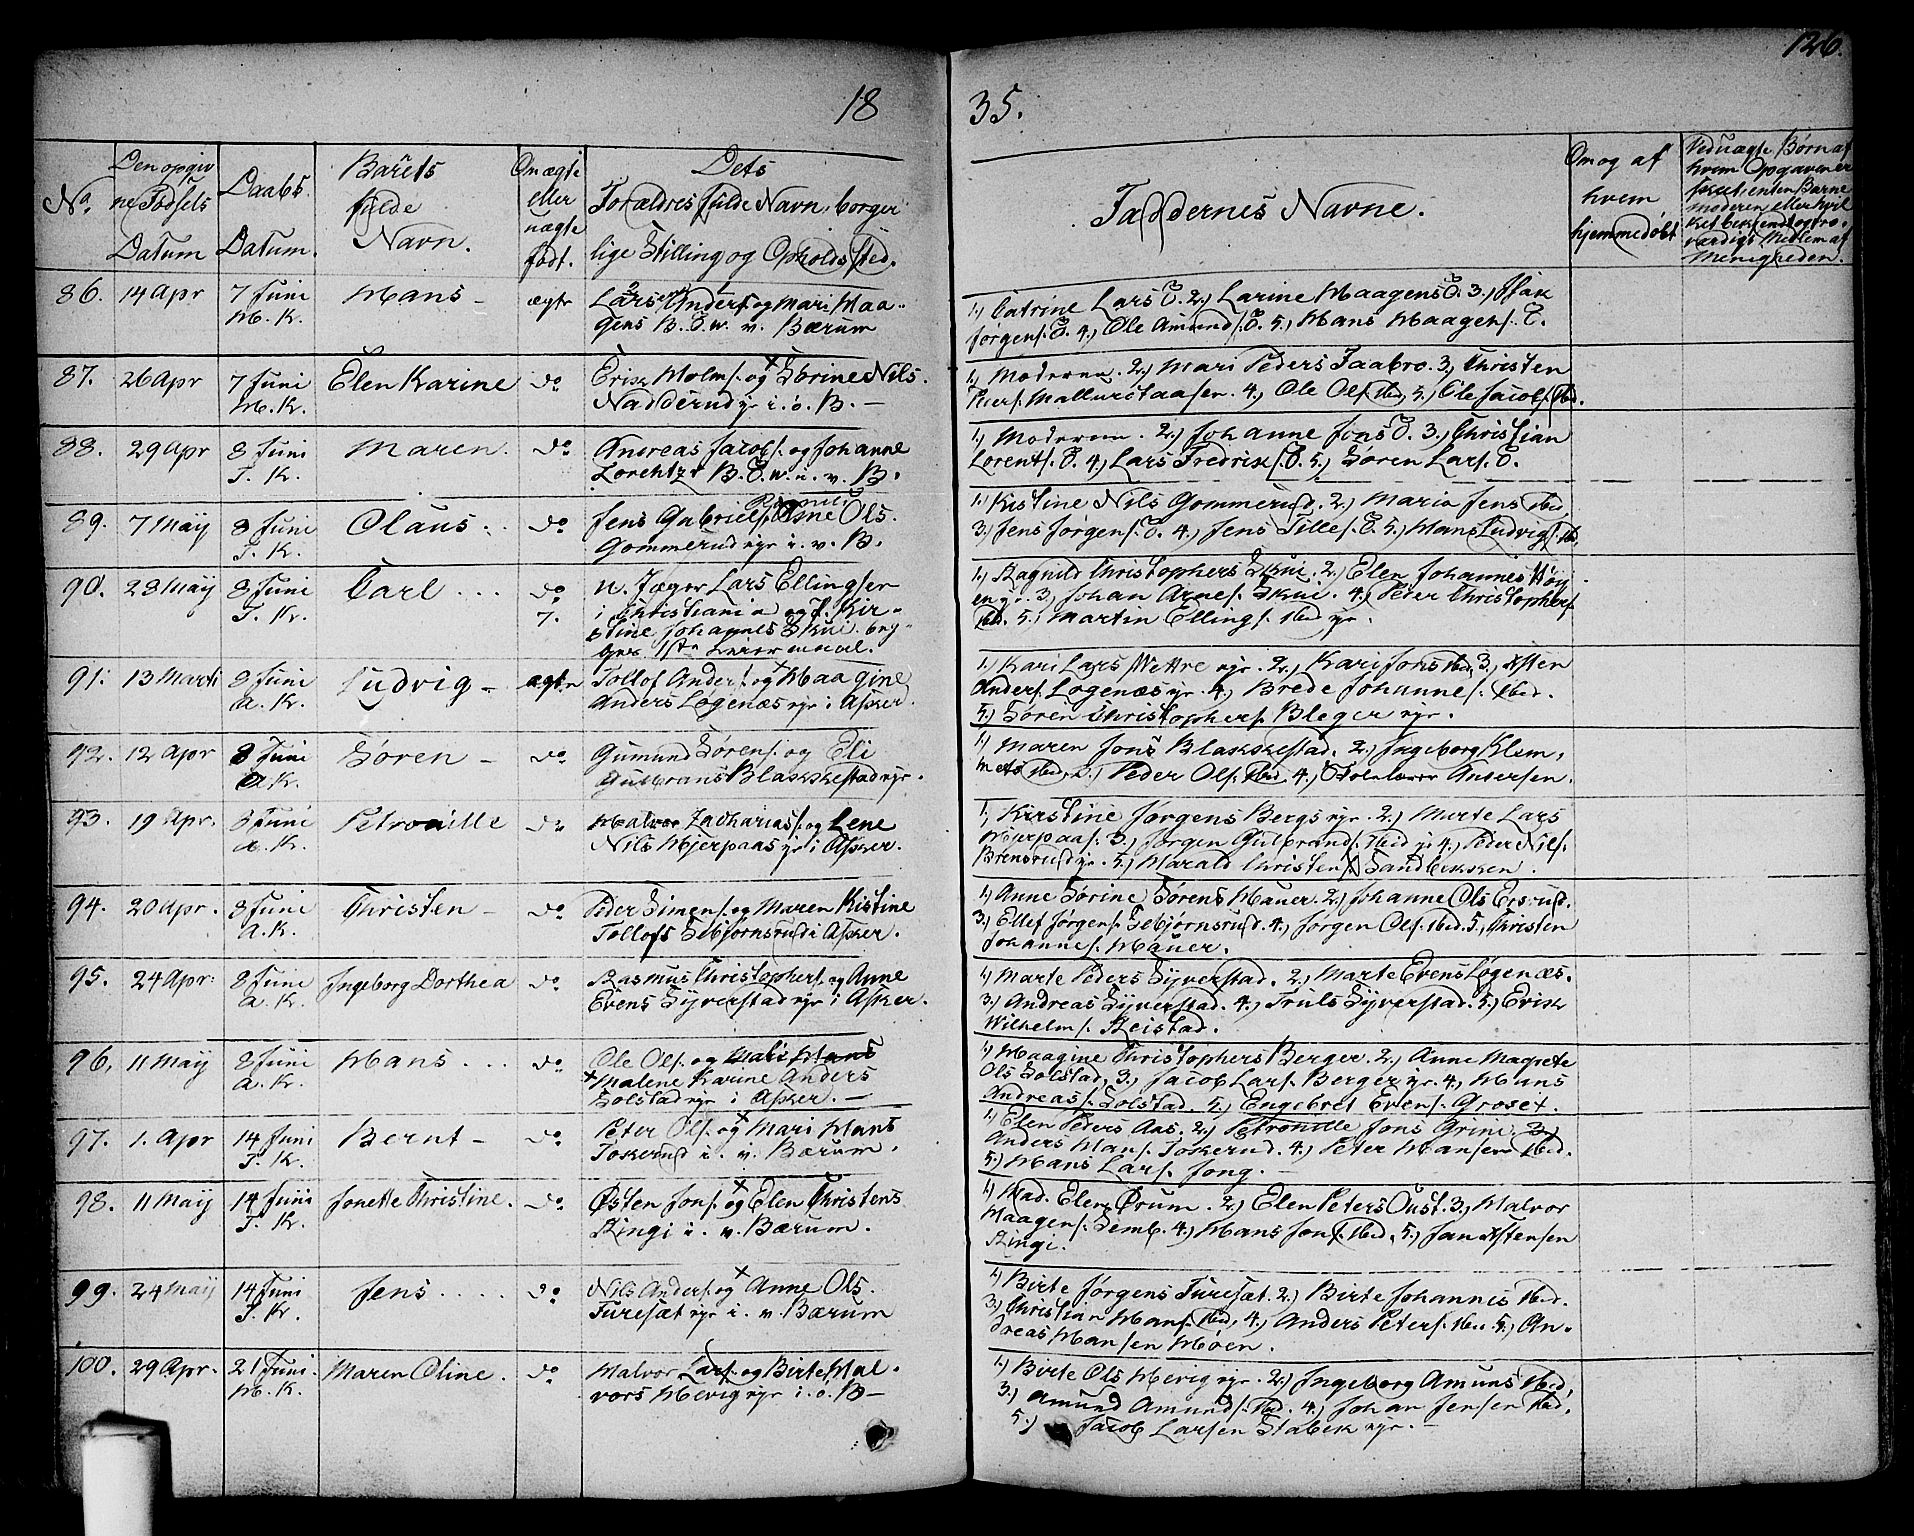 126.
18 35.
No. Den opgiv
ne Fødsels
Datum
Daabs
Datum.
Barets
fulde
Navn.
Om ægte
eller
uægte
født.
Dets
Forældres fulde Navn, borger
lige Stilling og Opholds sted.
Faddernes Navne.
Om og af
hvem
hjemmedøbt
Ved uægte Børn af
hvem Opgaven er
skeet, enten Barne
moderen eller hvil
ket bekiendt og tro-
værdigt Medlem af
Menigheden.
86. 14 Apr 7 Juni Hans - ægte
H. K.
Lars Anders. og Mari Haa-
gens B. E. w. v. Bærum
1.) Catrine Lars E. 2.) Larine Haagens E. 3.) Isak
Jørgens. E. 4.) Ole Amund s. E. 5.) Hans Haagens. E.
87. 26 Apr 7 Juni Elen Karine do
H. K.
Erik Holms. og Sørine Nils.
Nadderud yr i. ø. B. -
1.) Moderen. 2.) Mari Peders Jaabro. 3.) Christen
Peers. Hallurstaasen. 4.) Ole Ols. ibid. 5.) Ole Jacobs. ibid.
88. 29 Apr 8 Juni Maren. do
T. K.
Andreas Jacobs. og Johanne
Lorentz B. E. w. i. v. B.
1.) Moderen. 2.) Johanne Jons E. 3.) Christian
Lorents. E. 4.) Lars Fredriks. E. 5.) Søren Lars. E.
89. 7 May 8 Juni Claus. do
T. K.
Jens Gabriels. Ols.
Gommerud yr i. v. B.
1.) Kistine Nils Gommerud. 2.) Maria Jens ibid.
3.) Jens Jørgens. E. 4.) Jens Tilles. E. 5.) Hans Ludvigs. ibd.
90. 28 May 8 Juni Carl do
T. K. 7.
u. Jæger Lars Ellingsen
i Christiania og P. Kir-
stine Johannes Skui. beg-
ges 1ste Leiermaal.
1.) Ragnild Christophers Skui. 2.) Elen Johannes Høy
eng. 3.) Johan Arnes. Skui. 4.) Peder Christophers.
ibid. 5.) Martin Ellings. ibid yr.
91. 13 Marti 8 Juni Ludvig - ægte
A. K.
Tollof Anders. og Haagine
Anders Løgenæs yr i Asker.
1.) Kari Lars Wettre yr. 2.) Kari Jons ibid. 3.) Østen
Anders. Løgenæs yr. 4.) Brede Johannes. ibid.
5.) Søren Christophers. Bleger yr.
92. 12 Apr 8 Juni Søren - do
A. K.
Gumund Sørens. og Eli
Gulbrans Blakkestad yr.
1.) Maren Jons Blakkestad. 2.) Ingeborg Klem,
mets ibid. Peder Ols. ibid. 4.) Skolelærer Andersen.
93. 19 Apr. 8 Juni Petronille do
A. K.
Halvor Zacharias. og Lene
Nils Hjerpaas yr i Asker.
1.) Kirstine Jørgens Bergs yr. 2.) Marte Lars
Hierpaas. 3.) Jørgen Gulbrands. ibid yr 4.) Peder Nils.
Brensrud yr. 5.) Harald Christens. Sandbekken.
94. 20 Apr. 8 Juni Christen - do
A. K.
Peder Simens. og Maren Kistine
Tollofs Sebjørnsrud i Asker.
1.) Anne Sørine Sørens Hauer. 2.) Johanne Ols Epsrud.
3.) Ellef Jørgens. Sebjørnsrud. 4.) Jørgen Ols. ibid. 5.) Christen
Johannes. Hauer.
95. 24 Apr. 8 Juni Ingeborg Dorthea do
A. K.
Rasmus Christophers. og Anne
Evens Syverstad yr i Asker.
1.) Marte Peders Syverstad. 2.) Marte Evens Løgenæs.
3.) Andreas Syverstad. 4.) Truls Syverstad. 5.) Erik
Wilhelms. Reistad.
96. 11 May 8 Juni Hans do
A. K.
Ole Ols. og Mali Hans
Malene Karine Anders
Solstad yr i Asker. -
1.) Haagine Christophers Berger. 2.) Anne Magrete
Ols Solstad, 3.) Jacob Lars. Berger yr. 4.) Hans
Andreas. Solstad. 5.) Engebret Evens. Groset.
97. 1. Apr 14 Juni Bernt - do
T. K.
Peter Ols. og Mari Hans
Tokerud i. v. Bærum.
1.) Elen Peders Aas. 2.) Petronille Jons Grini. 3.)
Anders Hans. Tokerud. 4.) Peter Hansen ibid.
5.) Hans Lars. Jong. -
98. 11 May 14 Juni Jonette Christine. do
T. K.
Østen Jons. og Elen Christens
Ringi i. v. Bærum.
1.) Mad. Elen Ørum. 2.) Elen Peters Oust. 3.) Halvor
Haagens. Semb. 4.) Hans Jons. ibid. 5.) Jan Østensen
Ringi.
99. 24 May 14 Juni Jens do
T. K.
Nils Anders. og Anne Ols.
Turesæt yr i. v. Bærum
1.) Birte Jørgens Turesæt. 2.) Birte Johannis ibid.
3.) Christian Hans. ibid. 4.) Anders Peters. ibid 5.) An-
dreas Hansen Møen.
100. 29 Apr. 21 Juni. Maren Oline. do
H. K.
Halvor Lars. og Birte Hal-
vors Hevig yr i. ø. B -
1.) Birte Ols Hevig yr. 2.) Ingeborg Amuns ibid,
3.) Amund Amunds. ibid. 4.) Johan Jensen ibid.
5.) Jacob Larsen Stabek yr. -